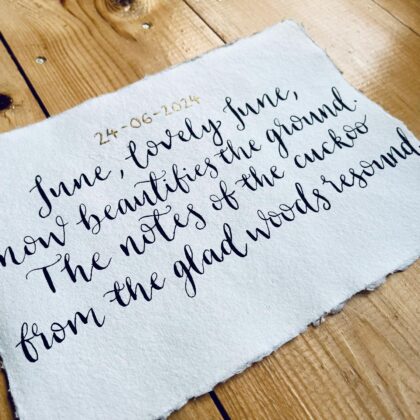 24-06-2024
June, lovely June,
now beautifies the ground.
The notes of the cuckoo
from the glad woods resound